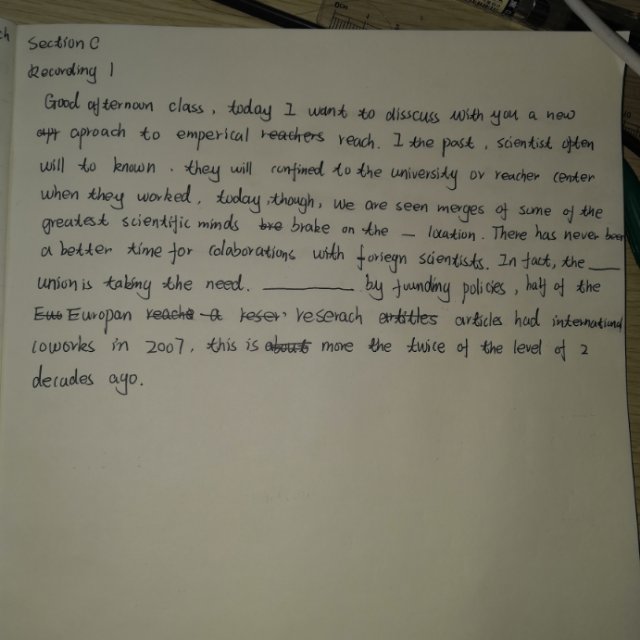 ch
Section C
Recording 1
Good afternoon class, today I want to disscuss with you a new
apr aproach to emperical reachers reach. I the past, scientist often
will to known. they will confined to the university or reacher center
when they worked, today,though, we are seen merges of some of the
greatest scientific minds bre brake on the _ location. There has never been
a better time for colaborations with foriegn scientists. In fact, the ___
union is taking the need. _________ by funding policies, half of the
Eus Europan reache a reser. reserach artitles articles had internationd
coworks in 2007, this is about more the twice of the level of 2
decades ago.